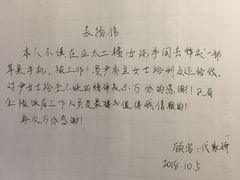 表扬信
本人不慎在正大二楼女洗手间丢失一部
苹果手机,被工作人员尹秀兰女士给到送还给我。
对尹女士拾金不昧的精神表示万分的感谢!只有
全做派工作人员是最棒最值得我信赖的!
再次万分感谢!
顾客:代
2018.10.5